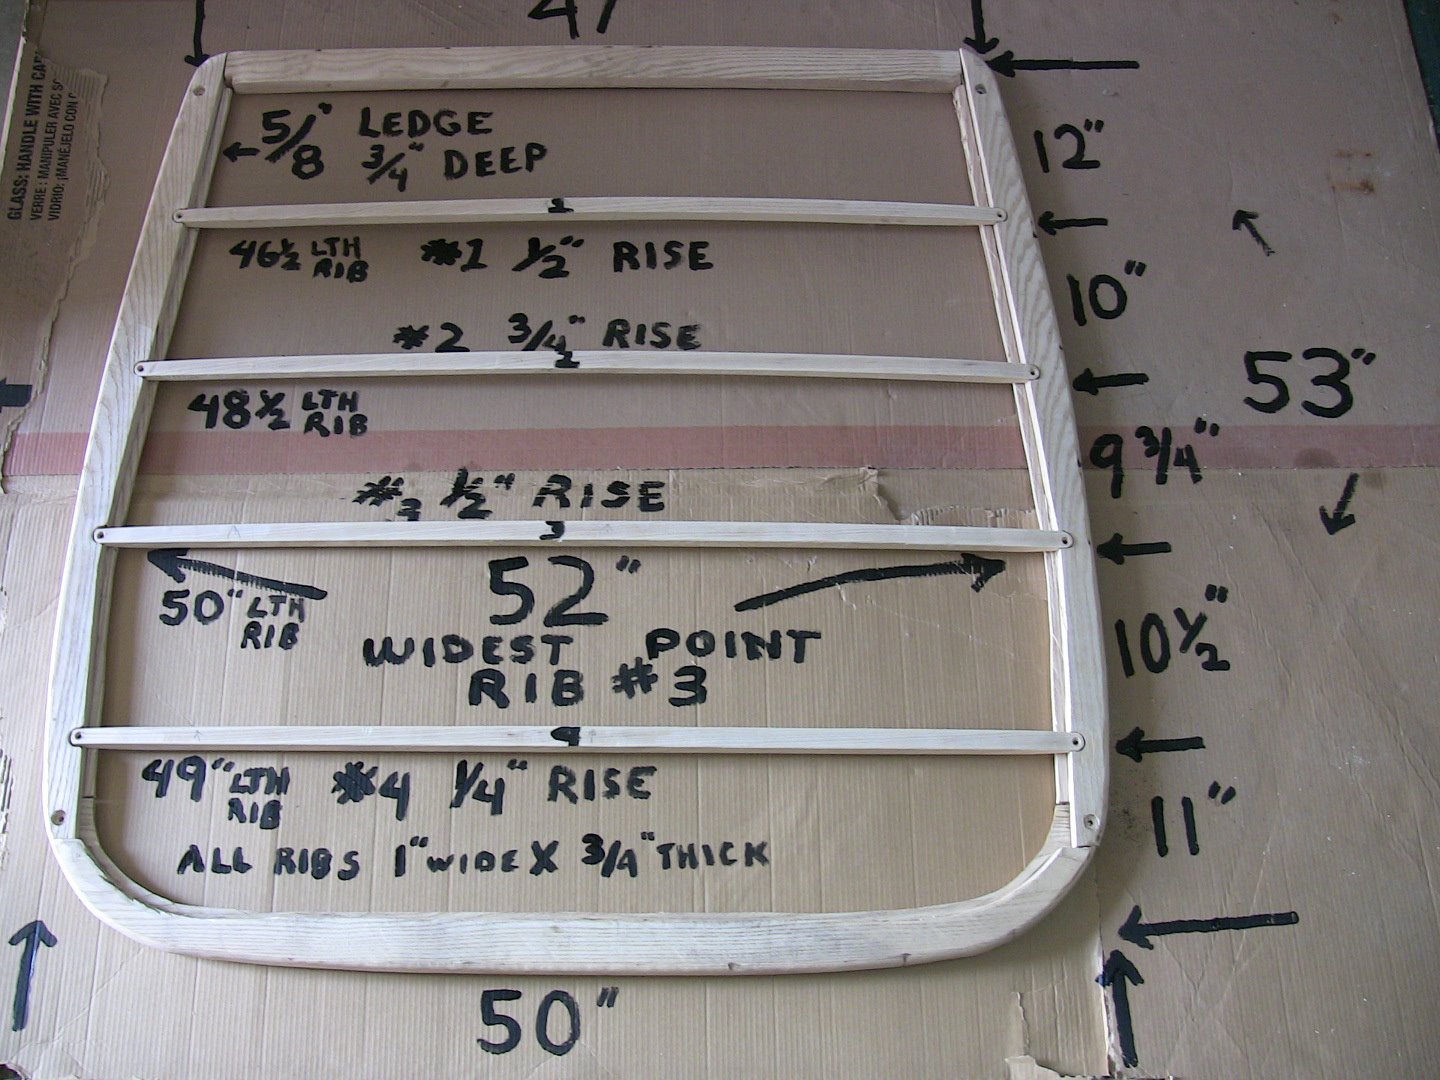 47
GLASS: HANDLE WITH
VERRE: MANIPULER AVEC
VIDRIO: ¡MANÉJELO CON
5/8" LEDGE
3/4" DEEP
12"
1
46 1/2 LTH RIB
#1 1/2" RISE
10"
#2 3/4" RISE
2
53"
48 1/2 LTH RIB
9 3/4"
#3 1/2" RISE
3
52"
50" LTH RIB
WIDEST POINT
RIB #3
10 1/2"
4
49" LTH RIB
#4 1/4" RISE
11"
ALL RIBS 1" WIDE X 3/4" THICK
50"